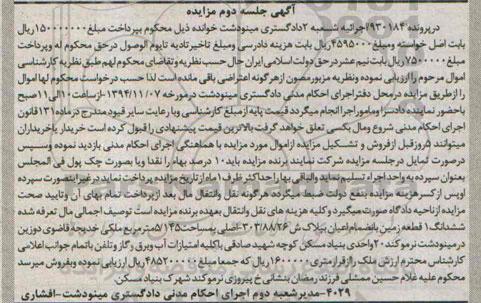 آگهی جلسه دوم مزایده
در پرونده ۹۳۰۱۸۴/اجرائیه شعبه ۲دادگستری مینودشت خوانده ذیل محکوم بپرداخت مبلغ ۱۵۰۰۰۰۰۰۰ریال
بابت اصل خواسته ومبلغ ۴۵۹۵۰۰۰ریال بابت هزینه دادرسی ومبلغ تاخیر تادیه تایوم الوصول درحق محکوم له وپرداخت
مبلغ ۷۵۰۰۰۰۰ریال بابت نیم عشر درحق دولت اسلامی ایران حال حسب نظریه وتقاضای محکوم لهم طبق نظریه کارشناسی
اموال مرحوم را ارزیابی نموده ونظریه مزبور مصون ازهرگونه اعتراضی باقی مانده است لذا حسب درخواست محکوم لها اموال
را ازطریق مزایده درمحل دفتر اجرای احکام مدنی دادگستری مینودشت درمورخه ۱۳۹۴/۱۱/۰۷ ازساعت ۱۰الی ۱۱صبح
باحضور نماینده دادسرا ومامور اجرا انجام میگردد قیمت پایه از مبلغ کارشناسی وبا رعایت سایر قیود مندرج درماده ۱۳۱قانون
اجرای احکام مدنی شروع ومال بکسی تعلق خواهد گرفت بالاترین قیمت پیشنهادی را قبول کرده است خریدار یا خریداران
میتوانند ۵روز قبل ازفروش و تشکیل مزایده ازاموال مورد مزایده با هماهنگی اجرای احکام مدنی بازدید نموده وسپس
درصورت تمایل درجلسه مزایده شرکت نمایند برنده مزایده باید ۱۰ درصد بهاء را نقدا ویا بصورت چک پول فی المجلس
بعنوان سپرده به واحد اجراء تسلیم نماید والباقی بها را حداکثر ظرف ۱ماه ازتاریخ مزایده پرداخت نماید درغیراینصورت سپرده
اوپس ازکسر هزینه مزایده بنفع دولت ضبط میگردد هرگونه نقل وانتقال مال بعد ازپرداخت تمام بهای آن وتایید صحت
مزایده ازناحیه دادگاه صورت میگیرد وکلیه هزینه های نقل وانتقال بعهده برنده مزایده است توصیف اجمالی مال تعرفه شده
ششدانگ ۱ قطعه زمین بانضمام اعیان بپلاک ش ۳۰۳/۸۸۲۶-اصلی بمساحت ۱۴۵/۵مترمربع ملکی خدیجه قاضوی دوزین
درمینودشت نرمو کند ۲۰واحدی بنیاد مسکن کوچه شهید صادقی باکلیه امتیازات آب وبرق وگاز وتلفن باتمام جوانب اعلامی
کارشناس محترم ارزش ملک را ازقرار متری ۱۶۰۰۰۰۰ریال که جمعا مبلغ ۴۸۵۲۰۰۰۰۰ریال ارزیابی نموده وبفروش میرسد
محکوم علیه غلام حسین ممشلی فرزند رمضان بنشانی خ پیروزی نرمو کند شهرک بنیاد مسکن.
۴۰۲۹-مدیر شعبه دوم اجرای احکام مدنی دادگستری مینودشت-افشاری